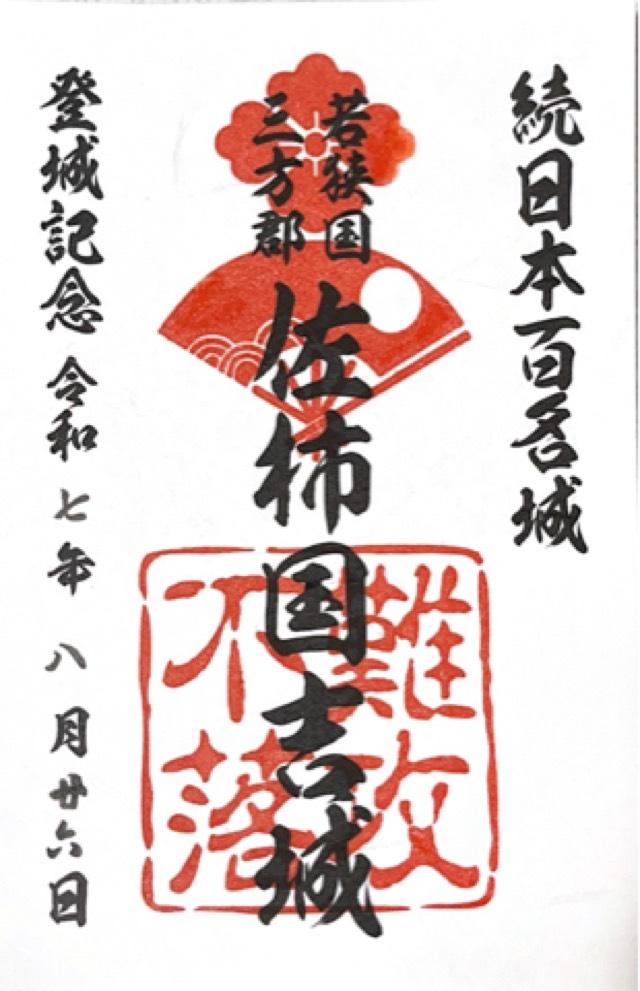 続日本百名城
若狭国
三方郡
佐柿国吉城
難攻
不落
登城記念 令和七年 八月廿六日